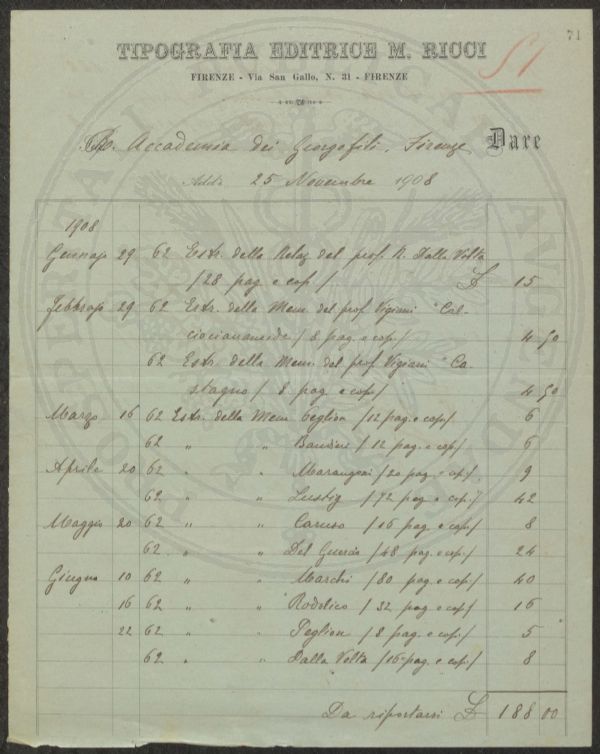 71
TIPOGRAFIA EDITRICE M. RICCI
51
FIRENZE - Via San Gallo, N. 31 - FIRENZE
R. Accademia dei Georgofili. Firenze Dare
Addì 25 Novembre 1908
1908
Gennajo 29 62 Estr. della Relaz del prof. R. Dalla Volta
/28 pag. e cop./ £ 15
Febbrajo 29 62 Estr. della Mem. del prof Vigiani "Cal-
ciocianamide/ 8 pag. e cop./ 4 50
62 Estr. della Mem. del prof Vigiani "Ca-
stagno/ 8 pag. e cop/ 4 50
Marzo 16 62 Estr. della Mem Peglion /12 pag. e cop/ 6
62 " " /12 pag. e cop/ 6
Aprile 20 62 " " Marangoni /20 pag. e cop/ 9
62 " " Lustig /72 pag. e cop./ 42
Maggio 20 62 " " Caruso /16 pag. e cop/ 8
62 " " Del Guercio /48 pag. e cop./ 24
Giugno 10 62 " " Marchi /80 pag. e cop/ 40
16 62 " " Rodolico / 32 pag. e cop/ 16
22 62 " " Peglion /8 pag. e cop./ 5
62 " " Dalla Volta /16 pag. e cop/ 8
Da riportarsi £ 188 00
PROSPERITATI PUBLICAE AUGENDAE